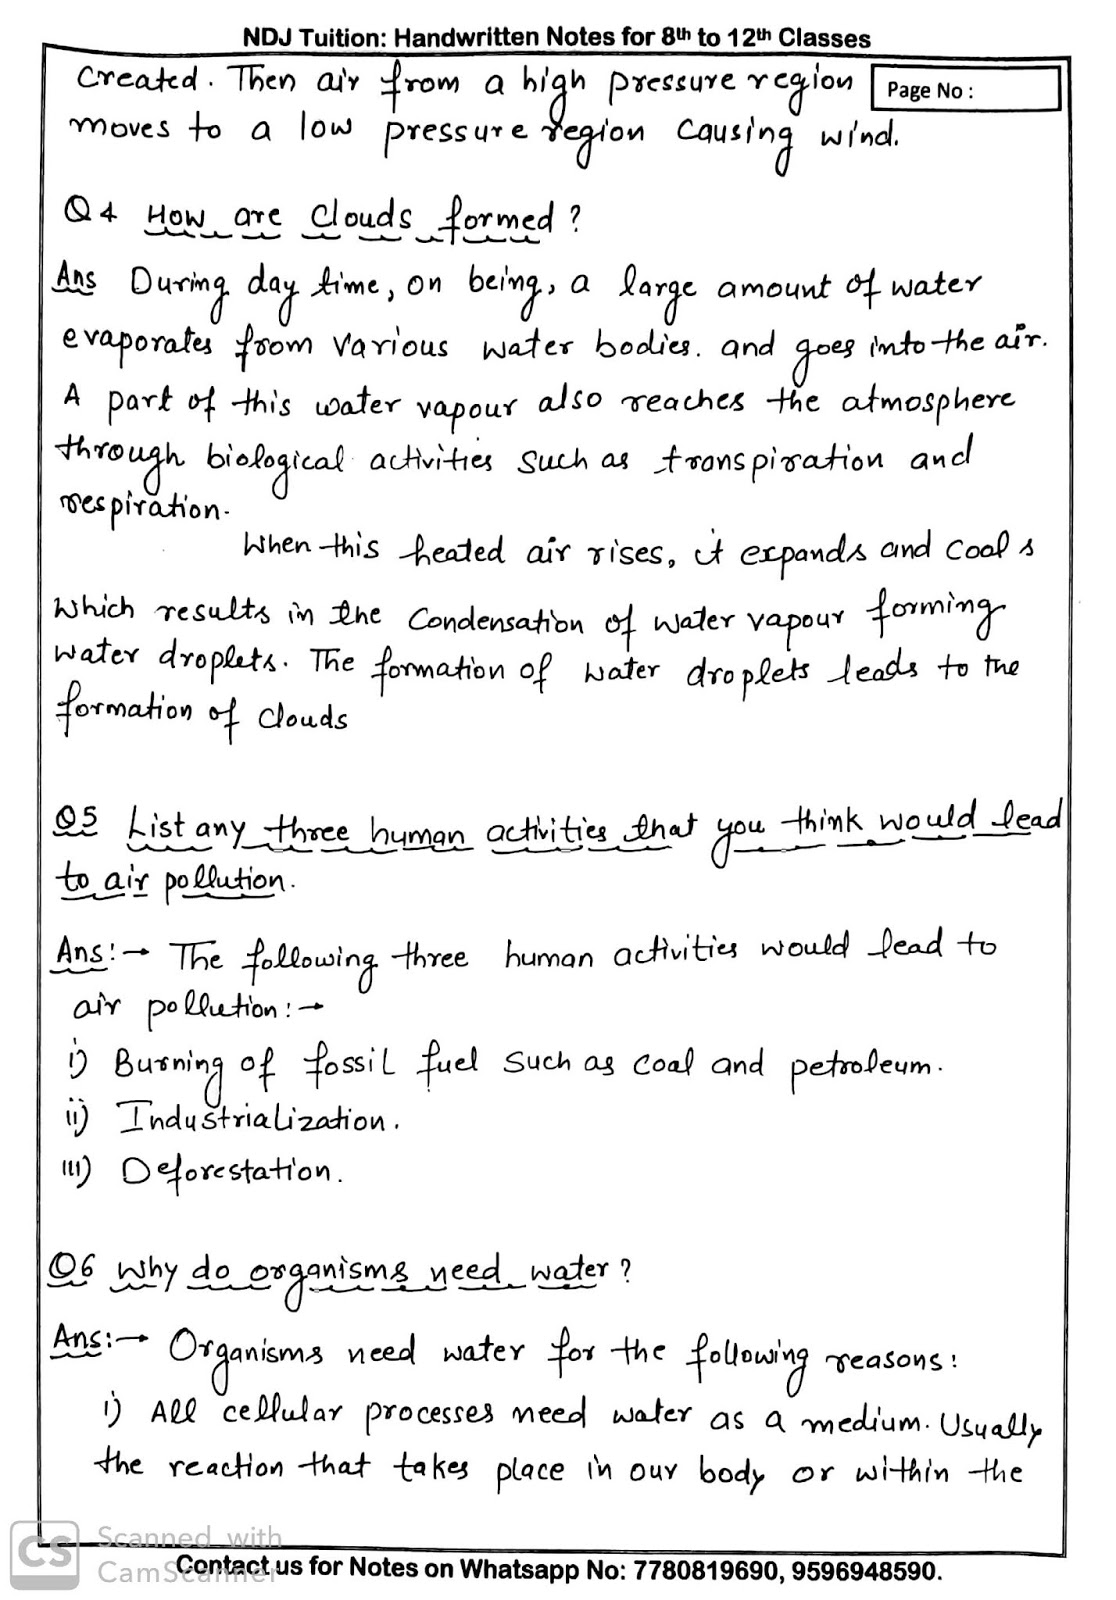 NDJ Tuition: Handwritten Notes for 8th to 12th Classes
Page No :
Created. Then air from a high pressure region
moves to a low pressure region causing wind.
Q4 How are clouds formed?
Ans During day time, on being, a large amount of water
evaporates from various water bodies. and goes into the air.
A part of this water vapour also reaches the atmosphere
through biological activities such as transpiration and
respiration.
When this heated air rises, it expands and cools
which results in the condensation of water vapour forming
water droplets. The formation of water droplets leads to the
formation of clouds
Q5 List any three human activities that you think would lead
to air pollution.
Ans:→ The following three human activities would lead to
air pollution:→
i) Burning of fossil fuel such as coal and petroleum.
ii) Industrialization.
iii) Deforestation.
Q6 Why do organisms need water?
Ans:→ Organisms need water for the following reasons:
i) All cellular processes need water as a medium. Usually
the reaction that takes place in our body or within the
CS
Scanned with
CamScanner
Contact us for Notes on Whatsapp No: 7780819690, 9596948590.